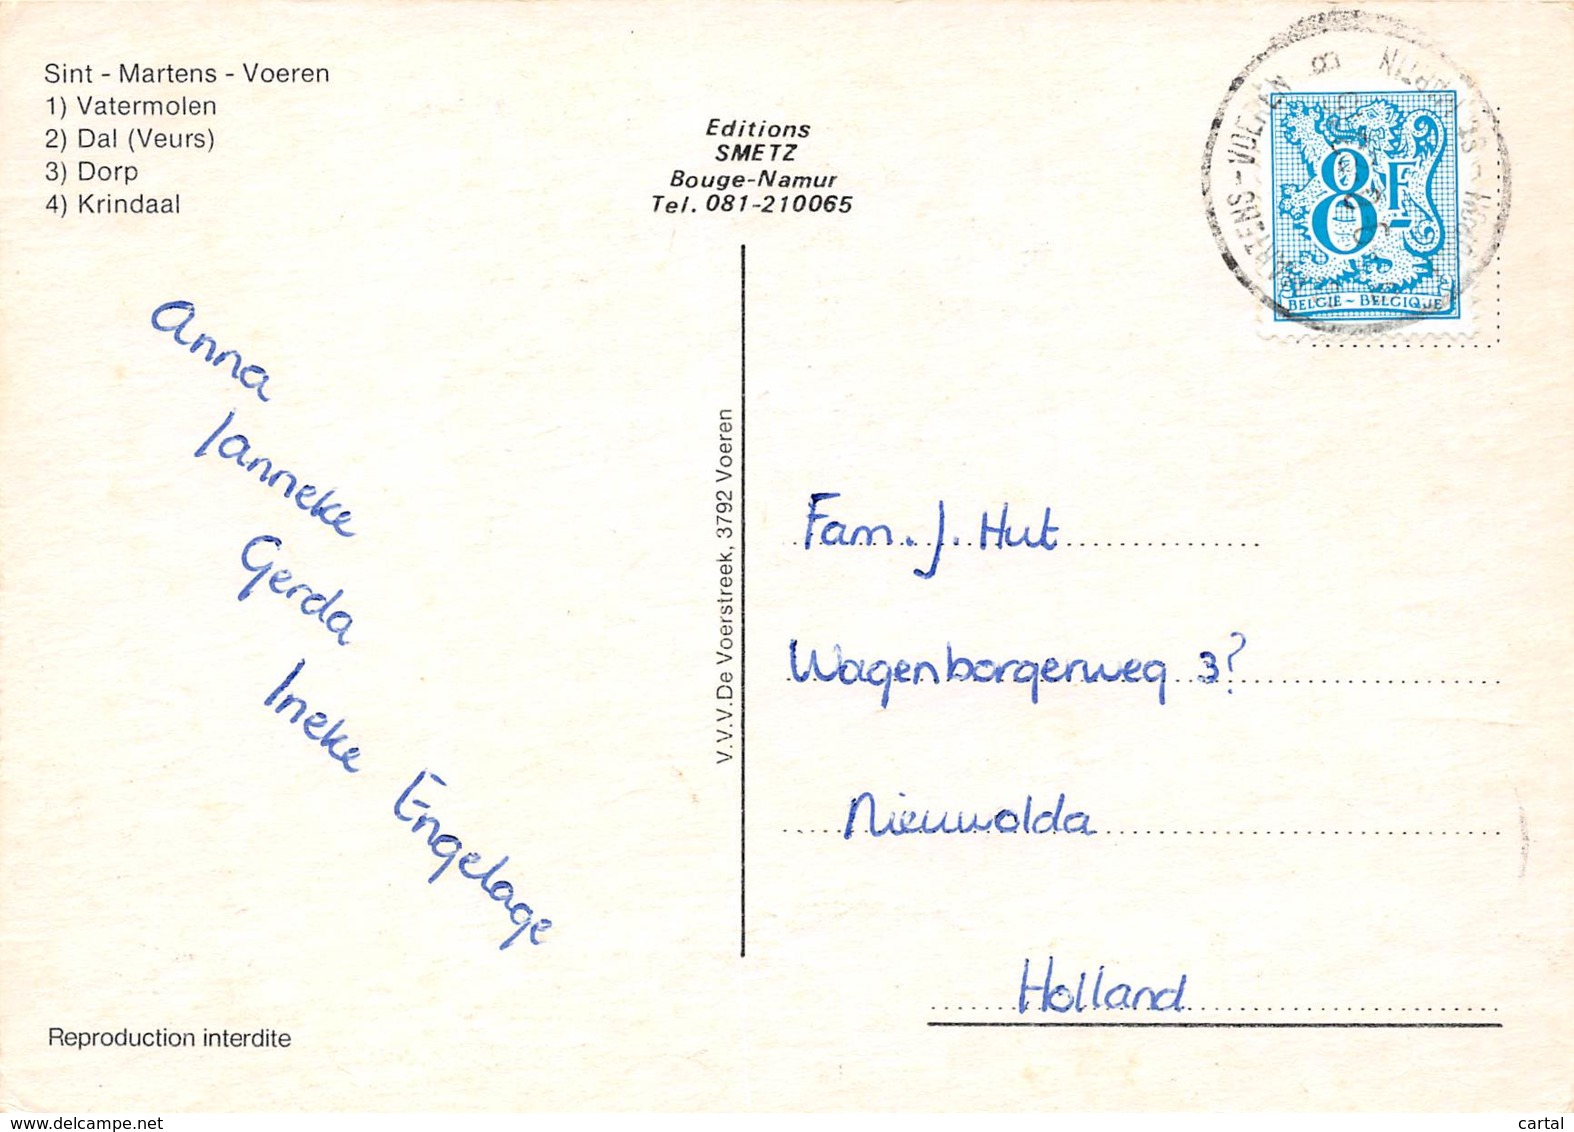 Sint - Martens - Voeren
1) Vatermolen
2) Dal (Veurs)
3) Dorp
4) Krindaal
Editions
SMETZ
Bouge-Namur
Tel. 081-210065
MARTENS-VOEREN
8F
BELGIË - BELGIQUE
Anna
Janneke
Gerda
Ineke Engelage
V.V.V. De Voerstreek, 3792 Voeren
Fam. J. Hut
Wagenborgerweg 3?
Nieuwolda
Holland
Reproduction interdite
www.delcampe.net
cartal